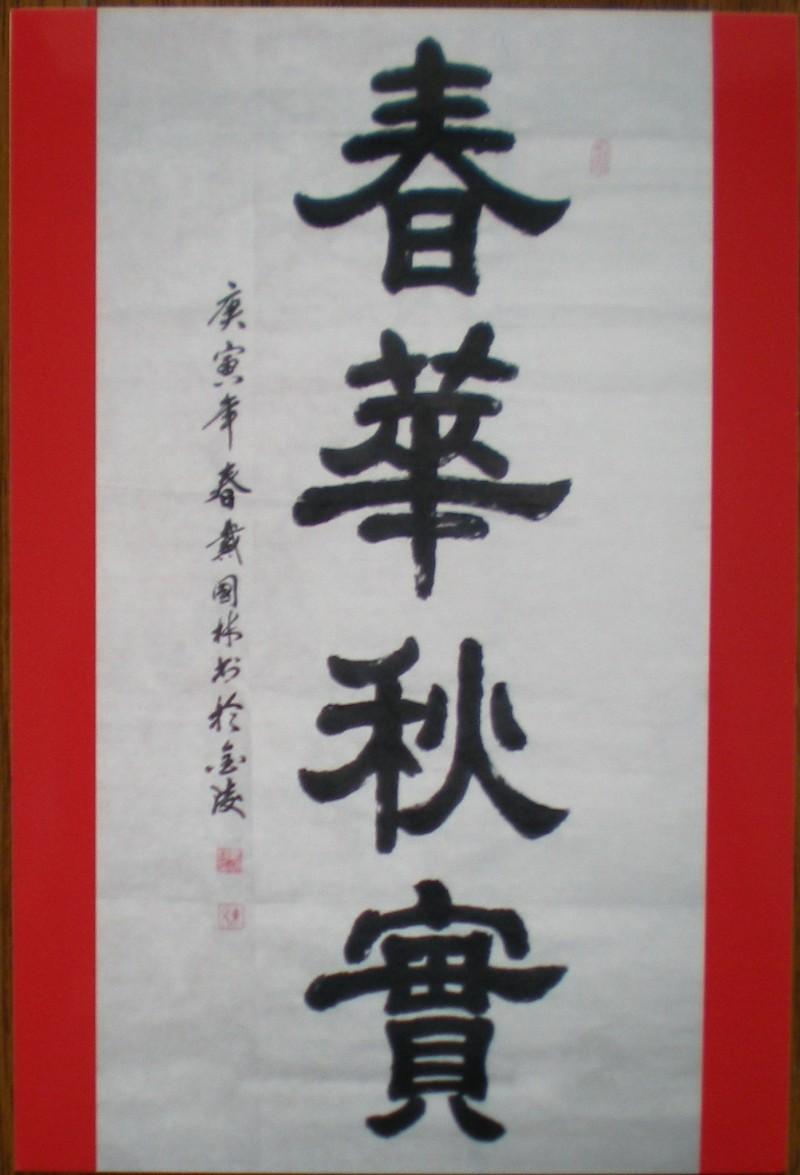 春華秋實
庚寅年春戴國林書於金陵